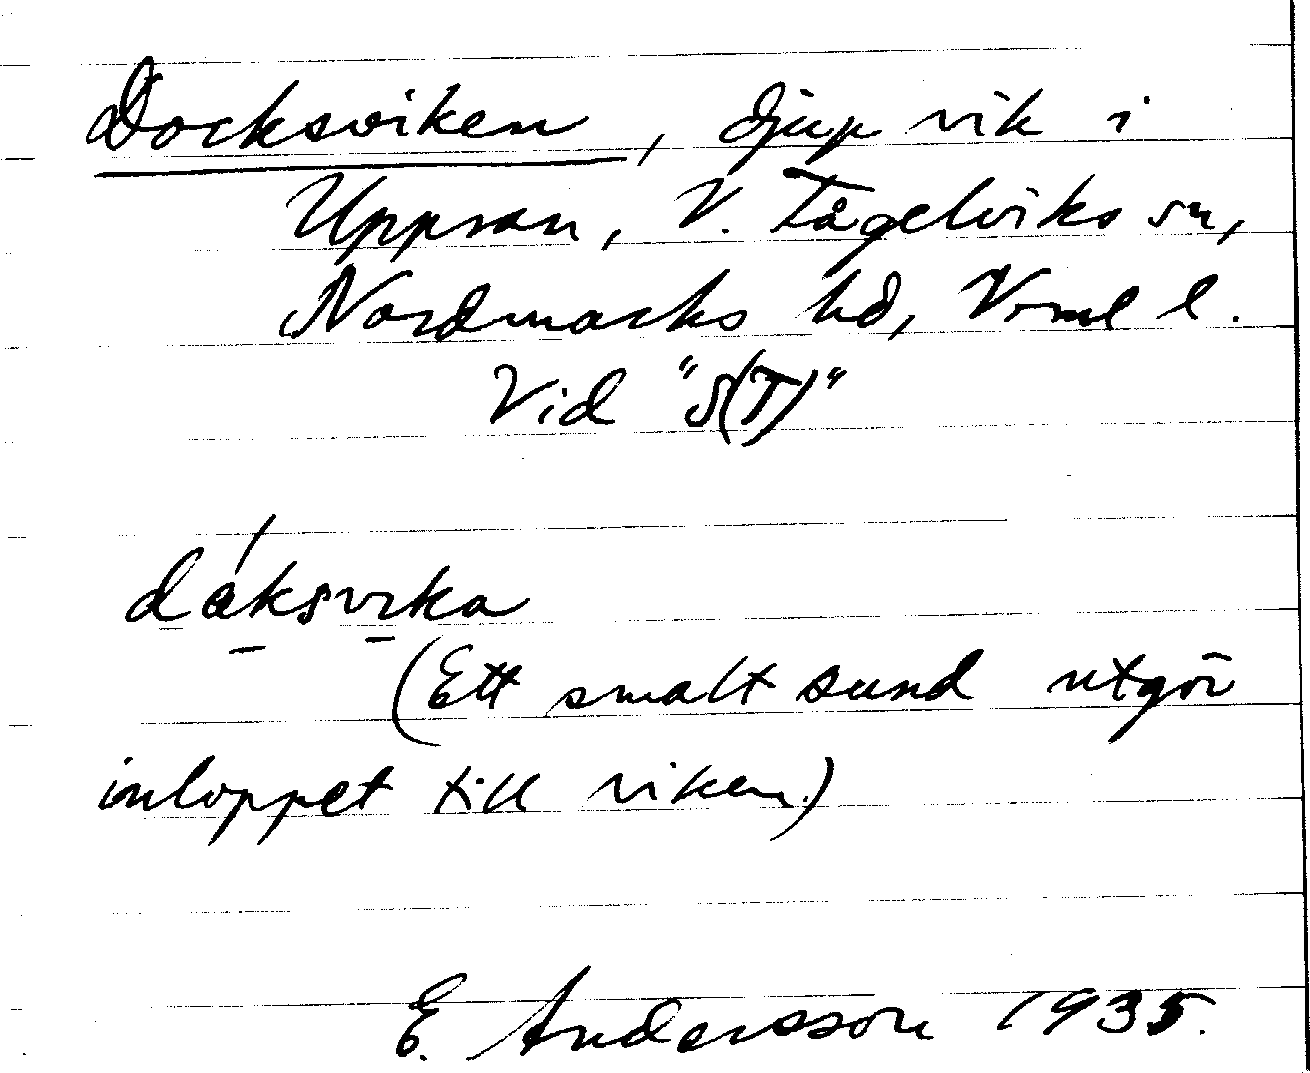 Docksviken, djup vik i
Uppsan, V. Fågelviks sn,
Nordmarks hd, Vrml l.
Vid "S(T)"
dáksvika
(Ett smalt sund utgör
inloppet till viken.)
E. Andersson 1935.